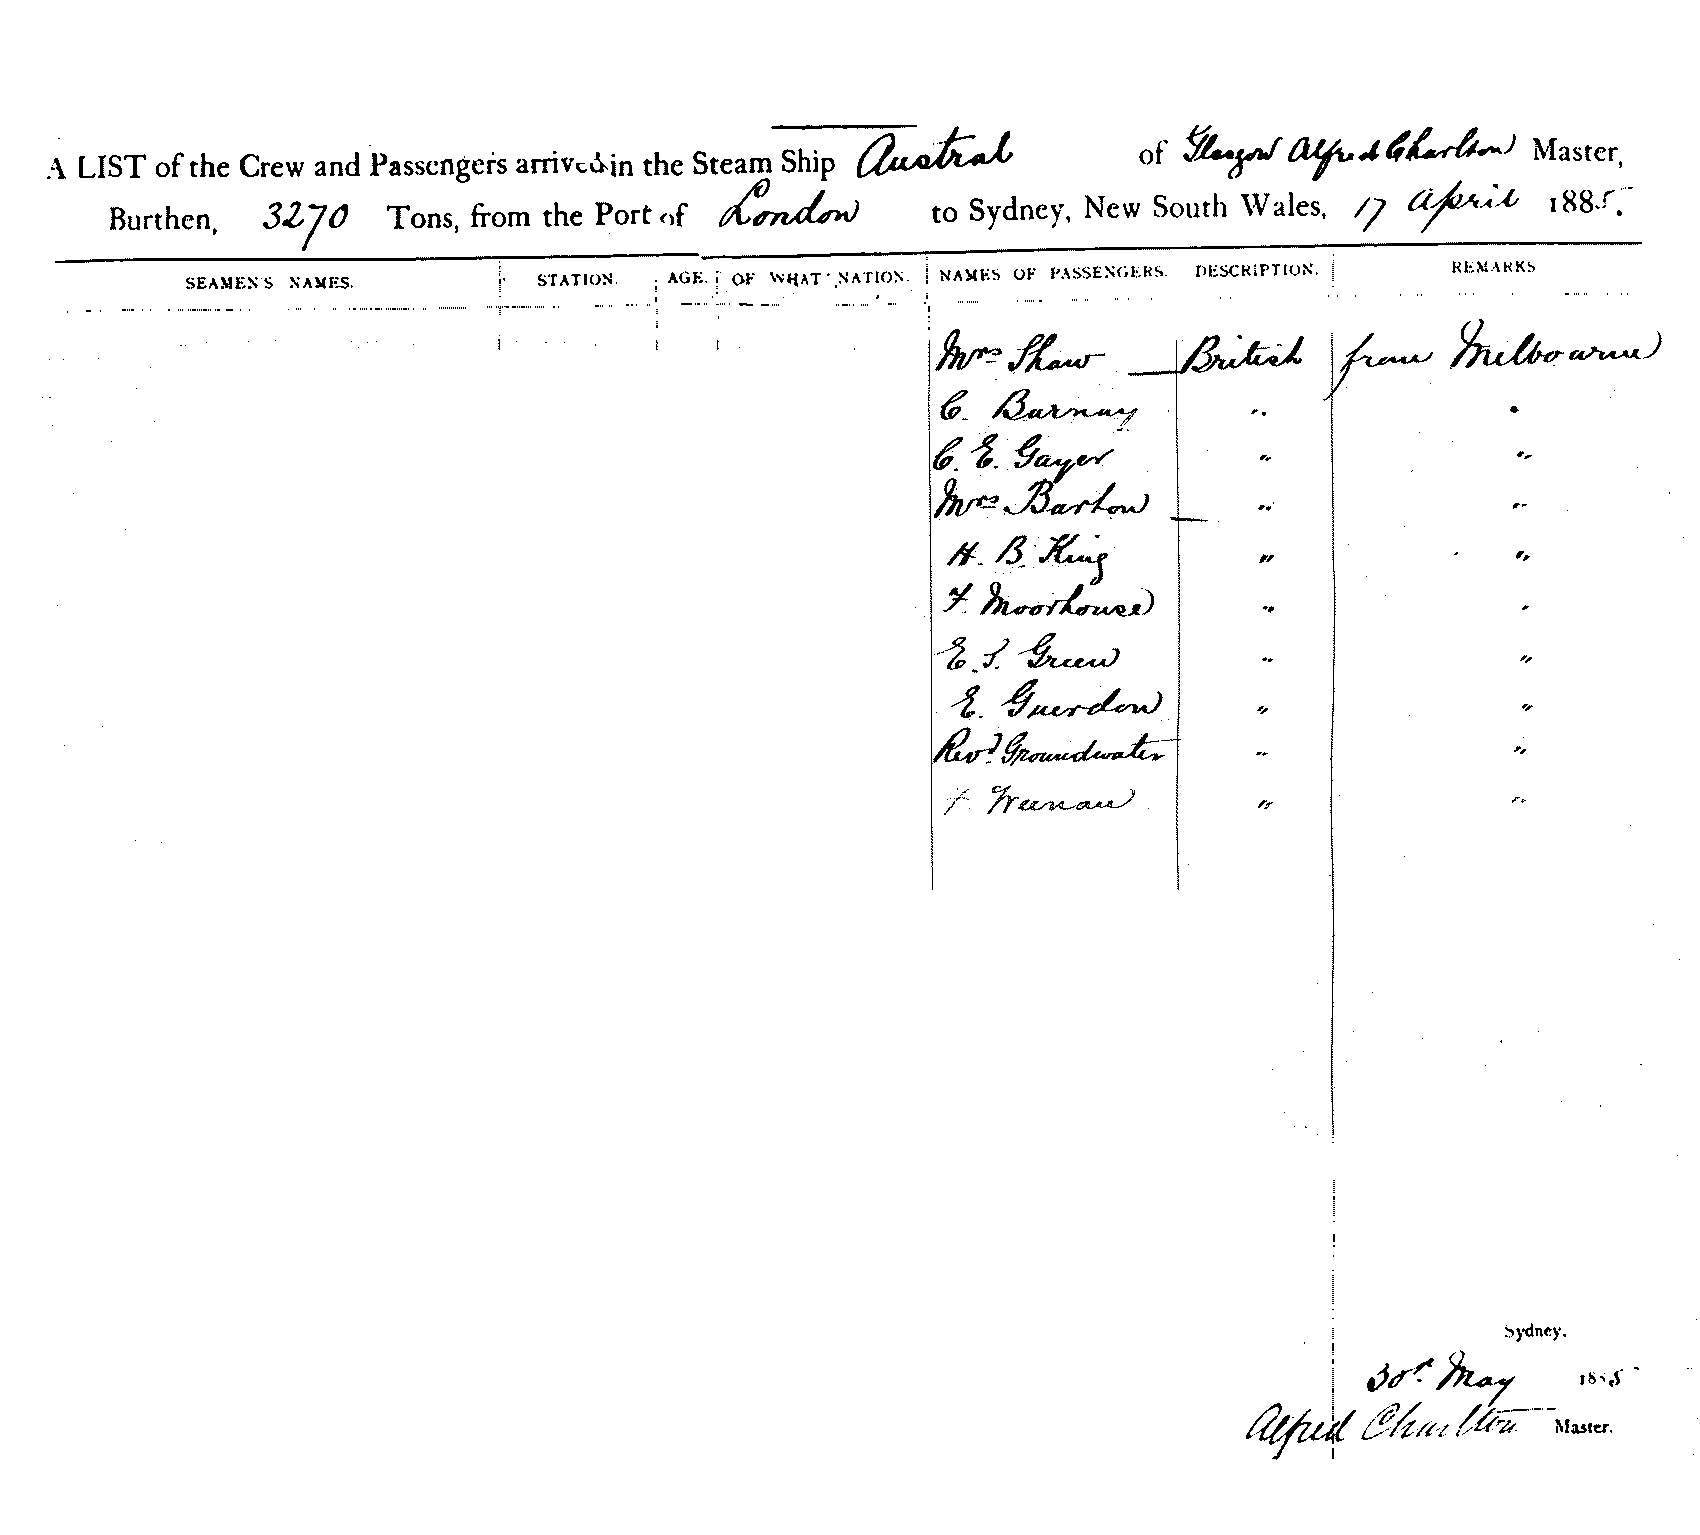 A LIST of the Crew and Passengers arrived in the Steam Ship Austral of Glasgow Alfred Charlton Master,
Burthen, 3270 Tons, from the Port of London to Sydney, New South Wales, 17 April 1885.
SEAMEN'S NAMES. STATION. AGE. OF WHAT NATION. NAMES OF PASSENGERS. DESCRIPTION. REMARKS
Mrs Shaw British from Melbourne
C. Barnay " "
C. E. Gayer " "
Mrs Barton " "
H. B. King " "
F. Moorhouse " "
E. S. Green " "
E. Guerdon " "
Revd Groundwater " "
F. " "
Sydney.
30th May 1885
Alfred Charlton Master.